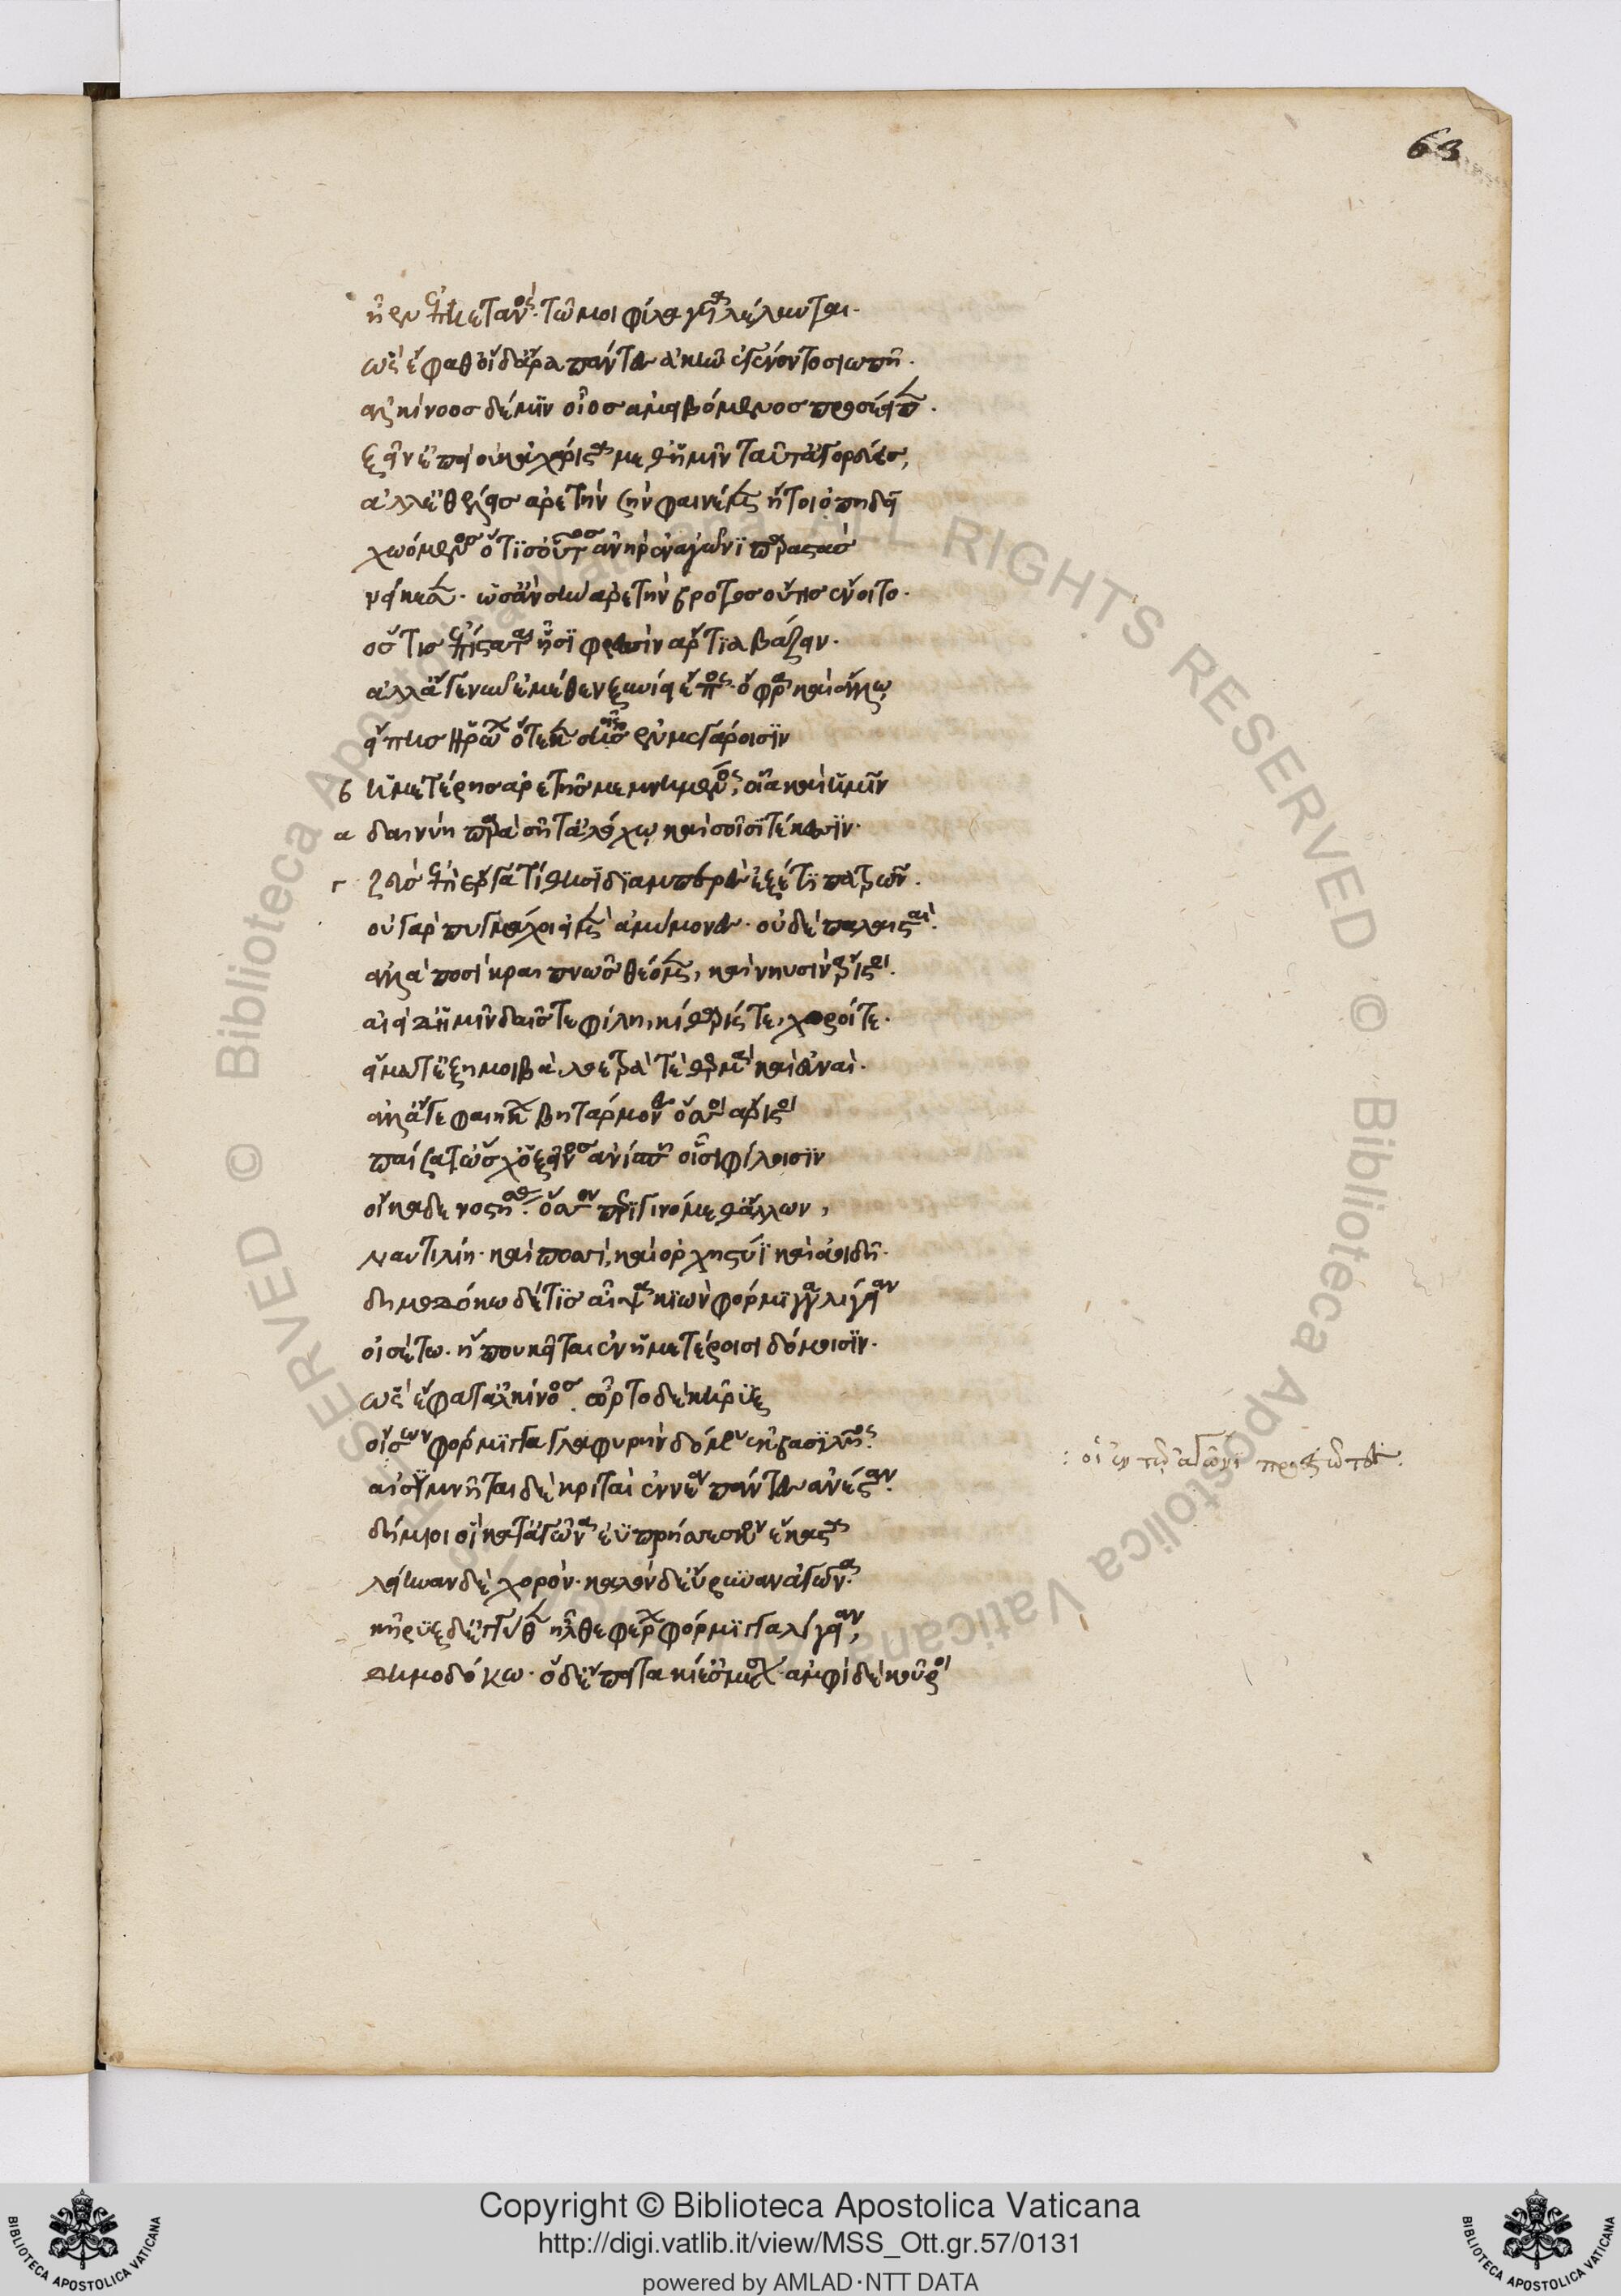 63
ἦεν ἐπηετανός· τῶ μοι φίλα γυῖα λέλυνται.
ὣς ἔφαθ' οἱ δ' ἄρα πάντες ἀκὴν ἐγένοντο σιωπῆ.
ἀλκίνοος δέ μιν οἶος ἀμειβόμενος προσέειπεν.
ξεῖν' ἐπεὶ οὐκ ἀχάριστα μεθ' ἡμῖν ταῦτ' ἀγορεύεις,
ἀλλ' ἐθέλεις ἀρετὴν σὴν φαινέμεν ἥ τοι ὀπηδεῖ
χωόμενος ὅτι σ' οὗτος ἀνὴρ ἐν ἀγῶνι παραστὰς
νείκεσεν. ὡς ἂν σὴν ἀρετὴν βροτὸς οὔτις ὄνοιτο.
ὅστις ἐπίσταιτο ᾗσι φρεσὶν ἄρτια βάζειν.
ἀλλ' ἄγε νῦν ἐμέθεν ξυνίει ἔπος. ὄφρα καὶ ἄλλω
εἴπης ἡρώων ὅτε κεν σοῖς ἐν μεγάροισιν
β ἡμετέρης ἀρετῆς μεμνημένος, οἷα καὶ ἡμῖν
α δαινύη παρὰ σῆ τ' ἀλόχω καὶ σοῖσι τέκεσσιν.
γ ζεὺς ἐπὶ ἔργα τίθησι διαμπερὲς ἐξέτι πατρῶν.
οὐ γὰρ πυγμάχοι εἰμὲν ἀμύμονες. οὐδὲ παλαισταί.
ἀλλὰ ποσὶ κραιπνῶς θέομεν, καὶ νηυσὶν ἄριστοι.
αἰεὶ δ' ἡμῖν δαίς τε φίλη, κίθαρίς τε, χοροί τε.
εἵματά τ' ἐξημοιβὰ, λοετρά τε θερμὰ καὶ εὐναί.
ἀλλ' ἄγε φαιήκων βητάρμονες ὅσσοι ἄριστοι
παίσατε ὥς χ' ὁ ξεῖνος ἐνίσπη οἷσι φίλοισιν
οἴκαδε νοστήσας. ὅσσον περιγινόμεθ' ἄλλων,
ναυτιλίη. καὶ ποσσὶ, καὶ ὀρχηστύϊ καὶ ἀοιδῆ.
δημοδόκω δέ τις αἶψα κιὼν φόρμιγγα λίγειαν
οἰσέτω. ἥ που κεῖται ἐν ἡμετέροισι δόμοισιν.
ὣς ἔφατ' ἀλκίνοος. ὦρτο δὲ κῆρυξ
οἴσων φόρμιγγα γλαφυρὴν δόμου ἐκ βασιλῆος.
αἰσυμνῆται δὲ κριτοὶ ἐννέα πάντες ἀνέσταν.
δήμιοι οἳ κατ' ἀγῶνας ἐῢ πρήσσεσκον ἕκαστα
λείηναν δὲ χορόν. καλὸν δ' εὔρυναν ἀγῶνα.
κῆρυξ δ' ἐγγύθεν ἦλθε φέρων φόρμιγγα λίγειαν,
δημοδόκω. ὁ δ' ἔπειτα κί' ἐς μέσον. ἀμφὶ δὲ κοῦροι
: οἱ ἐν τῷ ἀγῶνι προεστῶτες.
Copyright © Biblioteca Apostolica Vaticana
http://digi.vatlib.it/view/MSS_Ott.gr.57/0131
powered by AMLAD·NTT DATA
BIBLIOTECA APOSTOLICA VATICANA
BIBLIOTECA APOSTOLICA VATICANA